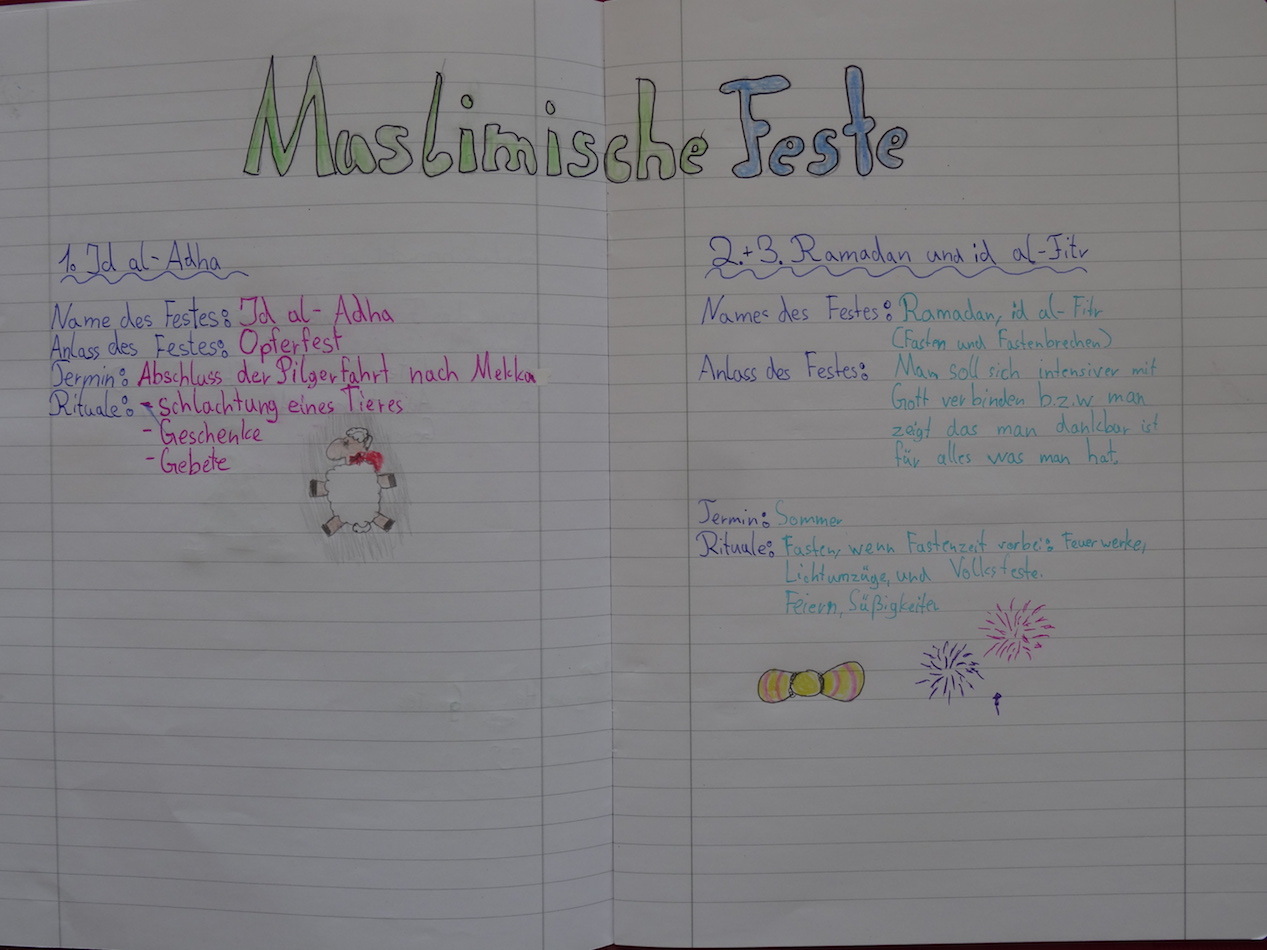 Muslimische Feste
1. Id al-Adha
Name des Festes: Id al-Adha
Anlass des Festes: Opferfest
Termin: Abschluss der Pilgerfahrt nach Mekka
Rituale: - Schlachtung eines Tieres
- Geschenke
- Gebete
2.+3. Ramadan und id al-Fitr
Names des Festes: Ramadan, id al-Fitr
(Fasten und Fastenbrechen)
Anlass des Festes: Man soll sich intensiver mit
Gott verbinden b.z.w man
zeigt das man dankbar ist
für alles was man hat.
Termin: Sommer
Rituale: Fasten, wenn Fastenzeit vorbei: Feuerwerke,
Lichtumzüge, und Volksfeste.
Feiern, Süßigkeiten